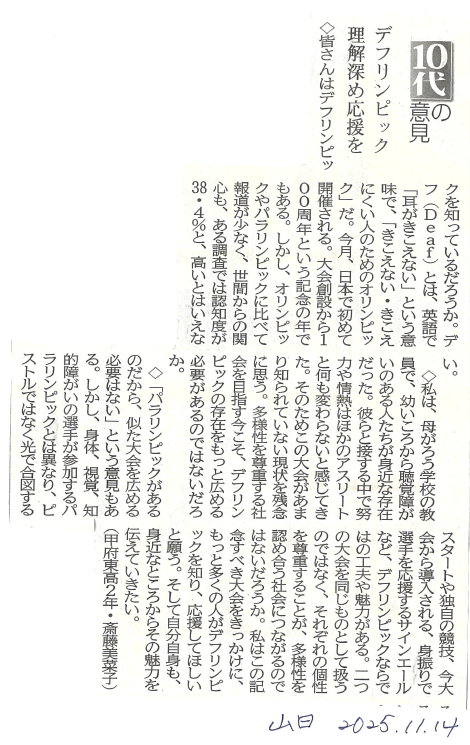 10代の意見
デフリンピック
理解深め応援を
◇皆さんはデフリンピッ
クを知っているだろうか。デ
フ（Ｄｅａｆ）とは、英語で
「耳がきこえない」という意
味で、「きこえない・きこえ
にくい人のためのオリンピッ
ク」だ。今月、日本で初めて
開催される。大会創設から１
００周年という記念の年で
もある。しかし、オリンピッ
クやパラリンピックに比べて
報道が少なく、世間からの関
心も、ある調査では認知度が
38・4％と、高いとはいえな
い。
◇私は、母がろう学校の教
員で、幼いころから聴覚障が
いのある人たちが身近な存在
だった。彼らと接する中で努
力や情熱はほかのアスリート
と何も変わらないと感じてき
た。そのためこの大会があま
り知られていない現状を残念
に思う。多様性を尊重する社
会を目指す今こそ、デフリン
ピックの存在をもっと広める
必要があるのではないだろう
か。
◇「パラリンピックがある
のだから、似た大会を広める
必要はない」という意見もあ
る。しかし、身体、視覚、知
的障がいの選手が参加するパ
ラリンピックとは異なり、ピ
ストルではなく光で合図する
スタートや独自の競技、今大
会から導入される、身振りで
選手を応援するサインエール
など、デフリンピックならで
はの工夫や魅力がある。二つ
の大会を同じものとして扱う
のではなく、それぞれの個性
を尊重することが、多様性を
認め合う社会につながるので
はないだろうか。私はこの記
念すべき大会をきっかけに、
もっと多くの人がデフリンピ
ックを知り、応援してほしい
と願う。そして自分自身も、
身近なところからその魅力を
伝えていきたい。
（甲府東高２年・斎藤美菜子）
山日 2025.11.14